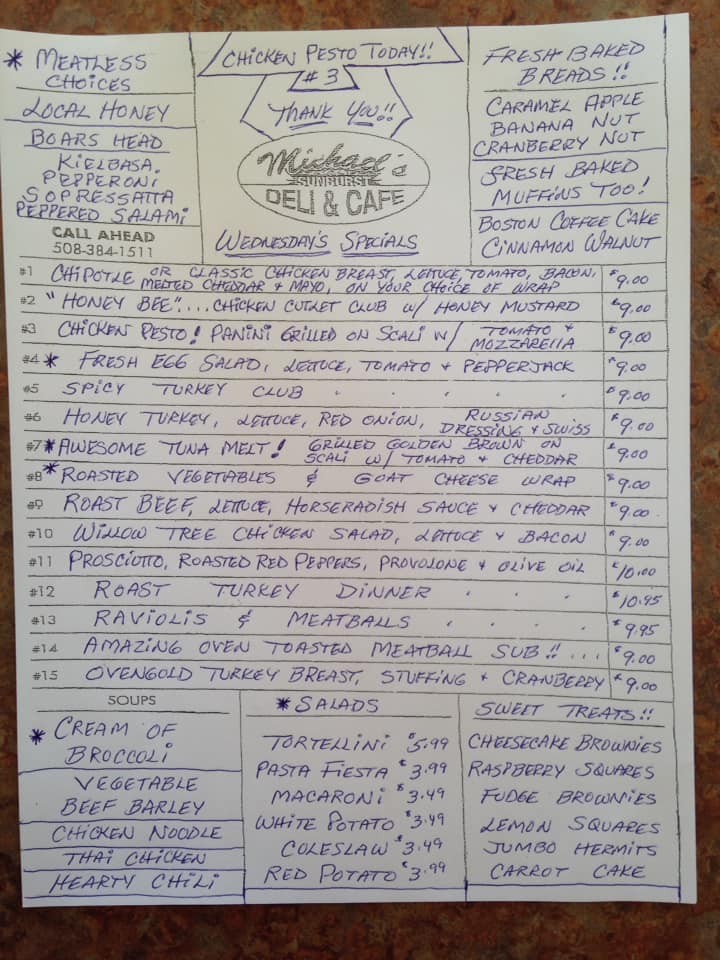 * MEATLESS
CHOICES
LOCAL HONEY
BOARS HEAD
KIELBASA
PEPPERONI
SOPRESSATTA
PEPPERED SALAMI
CALL AHEAD
508-384-1511
CHICKEN PESTO TODAY!!
#3
THANK YOU!!
Michael's
SUNBURST
DELI & CAFE
WEDNESDAY'S SPECIALS
FRESH BAKED
BREADS!!
CARAMEL APPLE
BANANA NUT
CRANBERRY NUT
FRESH BAKED
MUFFINS TOO!
BOSTON COFFEE CAKE
CINNAMON WALNUT
#1 CHIPOTLE OR CLASSIC CHICKEN BREAST, LETTUCE, TOMATO, BACON,
MELTED CHEDDAR & MAYO, ON YOUR CHOICE OF WRAP $9.00
#2 "HONEY BEE".... CHICKEN CUTLET CLUB W/ HONEY MUSTARD $9.00
#3 CHICKEN PESTO! PANINI GRILLED ON SCALI W/ TOMATO &
MOZZARELLA $9.00
#4 * FRESH EGG SALAD, LETTUCE, TOMATO & PEPPERJACK $9.00
#5 SPICY TURKEY CLUB . . . . . $9.00
#6 HONEY TURKEY, LETTUCE, RED ONION, RUSSIAN
DRESSING & SWISS $9.00
#7 * AWESOME TUNA MELT! GRILLED GOLDEN BROWN ON
SCALI W/ TOMATO & CHEDDAR $9.00
#8 * ROASTED VEGETABLES & GOAT CHEESE WRAP $9.00
#9 ROAST BEEF, LETTUCE, HORSERADISH SAUCE & CHEDDAR $9.00
#10 WILLOW TREE CHICKEN SALAD, LETTUCE & BACON $9.00
#11 PROSCIUTTO, ROASTED RED PEPPERS, PROVOLONE & OLIVE OIL $10.00
#12 ROAST TURKEY DINNER . . . $10.95
#13 RAVIOLIS & MEATBALLS . . . $9.95
#14 AMAZING OVEN TOASTED MEATBALL SUB!! ... $9.00
#15 OVENGOLD TURKEY BREAST, STUFFING & CRANBERRY $9.00
SOUPS
* CREAM OF
BROCCOLI
VEGETABLE
BEEF BARLEY
CHICKEN NOODLE
THAI CHICKEN
HEARTY CHILI
* SALADS
TORTELLINI $5.99
PASTA FIESTA $3.99
MACARONI $3.49
WHITE POTATO $3.49
COLESLAW $3.49
RED POTATO $3.99
SWEET TREATS!!
CHEESECAKE BROWNIES
RASPBERRY SQUARES
FUDGE BROWNIES
LEMON SQUARES
JUMBO HERMITS
CARROT CAKE